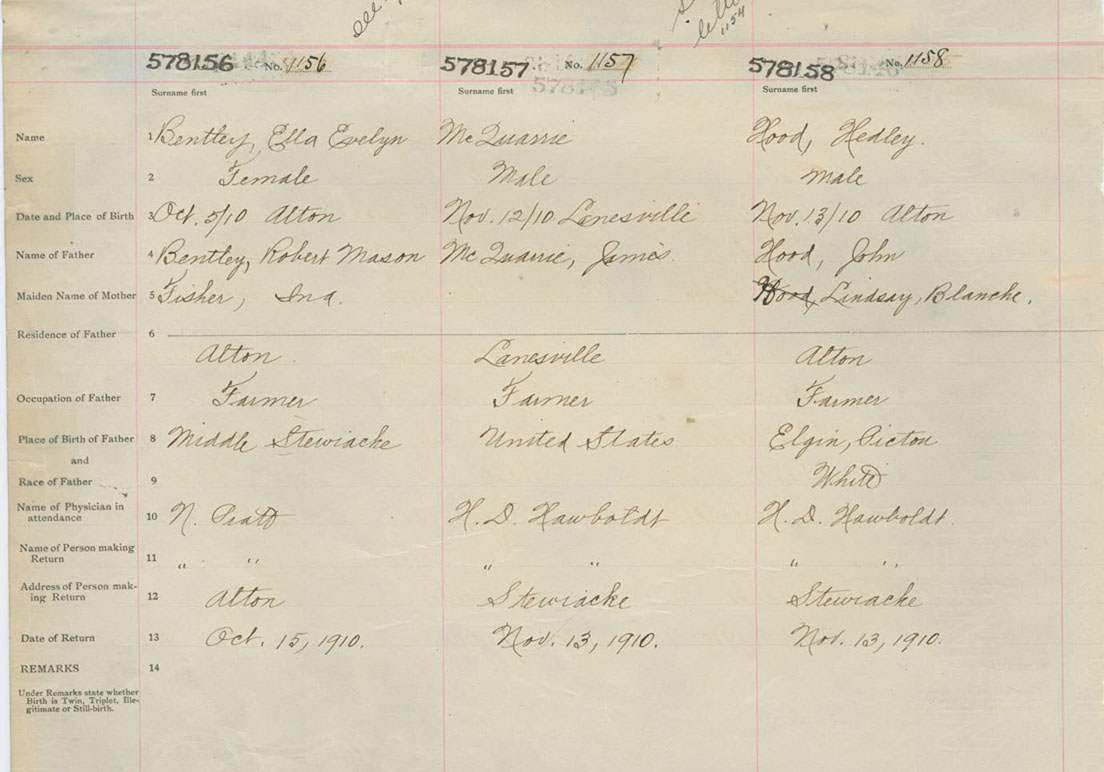 see
letter
1154
578156 No. 1156 578157 No. 1157 578158 No. 1158
Surname first Surname first Surname first
Name 1 Bentley, Ella Evelyn McQuarrie Hood, Hedley.
Sex 2 Female Male Male
Date and Place of Birth 3 Oct. 5/10 Alton Nov. 12/10 Lanesville Nov. 13/10 Alton
Name of Father 4 Bentley, Robert Mason McQuarrie, James. Hood, John
Maiden Name of Mother 5 Fisher, Ina. Hood, Lindsay, Blanche.
Residence of Father 6
Alton Lanesville Alton
Occupation of Father 7 Farmer Farmer Farmer
Place of Birth of Father 8 Middle Stewiacke United States Elgin, Picton
and
Race of Father 9 White
Name of Physician in
attendance 10 N. Pratt H. D. Hawboldt H. D. Hawboldt.
Name of Person making
Return 11 " " " " " "
Address of Person mak-
ing Return 12 Alton Stewiacke Stewiacke
Date of Return 13 Oct. 15, 1910. Nov. 13, 1910. Nov. 13, 1910.
REMARKS 14
Under Remarks state whether
Birth is Twin, Triplet, Ille-
gitimate or Still-birth.